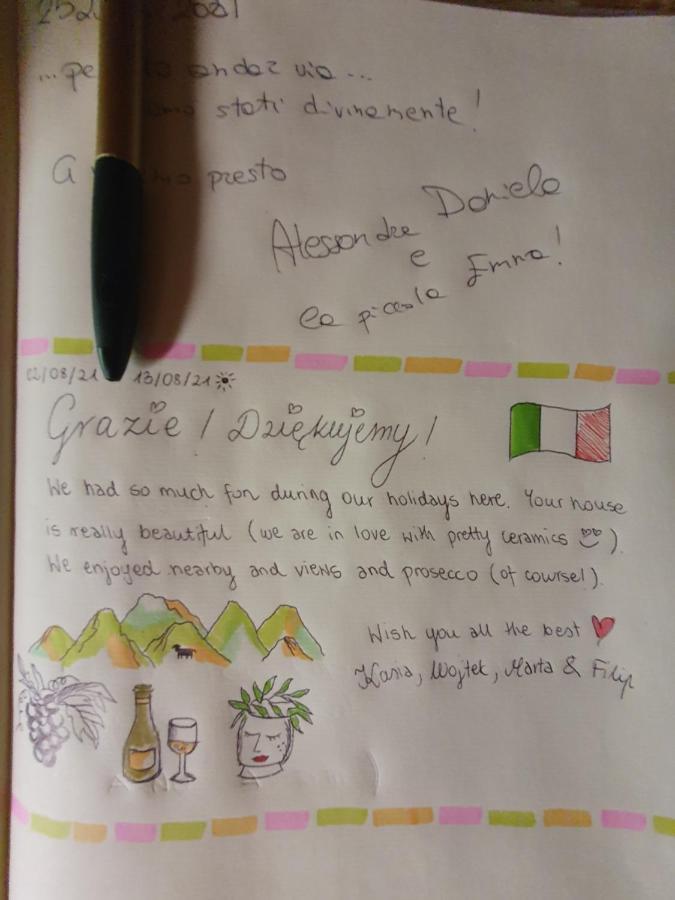 ...pe andar via...
stati divinamente!
A presto
Daniele
Alessandra
e
la piccola Emma!
02/08/21 13/08/21
Grazie! Dziękujemy!
We had so much fun during our holidays here. Your house
is really beautiful (we are in love with pretty ceramics ).
We enjoyed nearby and views and prosecco (of course!).
Wish you all the best ❤
Kasia, Wojtek, Marta & Filip